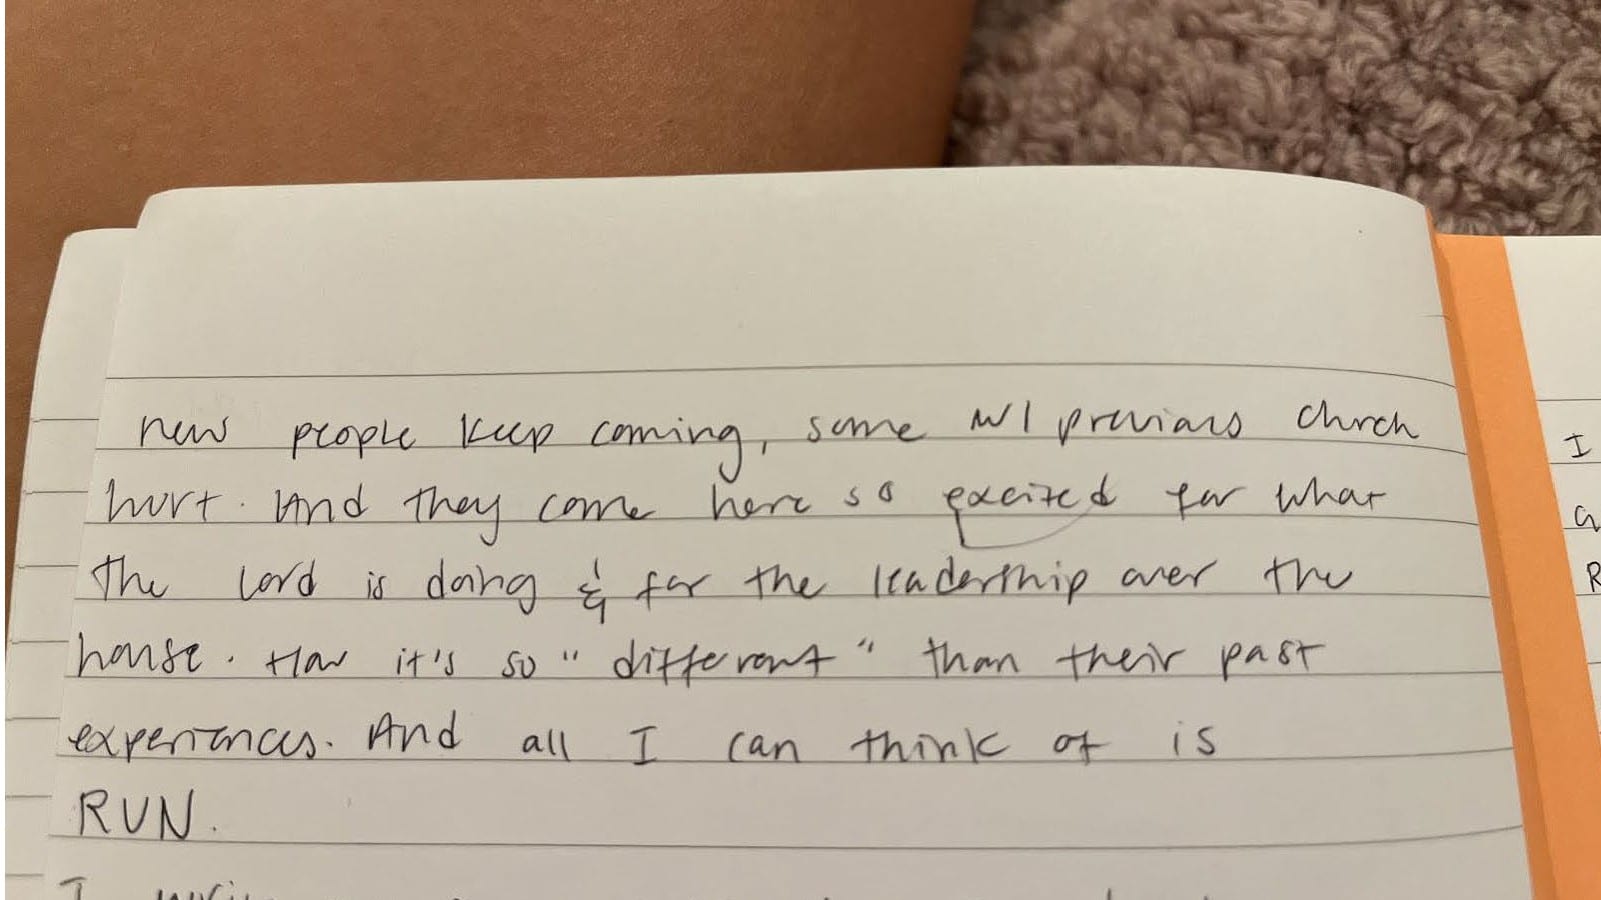 new people keep coming, some w/ previous church
hurt. And they come here so excited for what
the Lord is doing & for the leadership over the
house. How it's so "different" than their past
experiences. And all I can think of is
RUN.
I
I
R